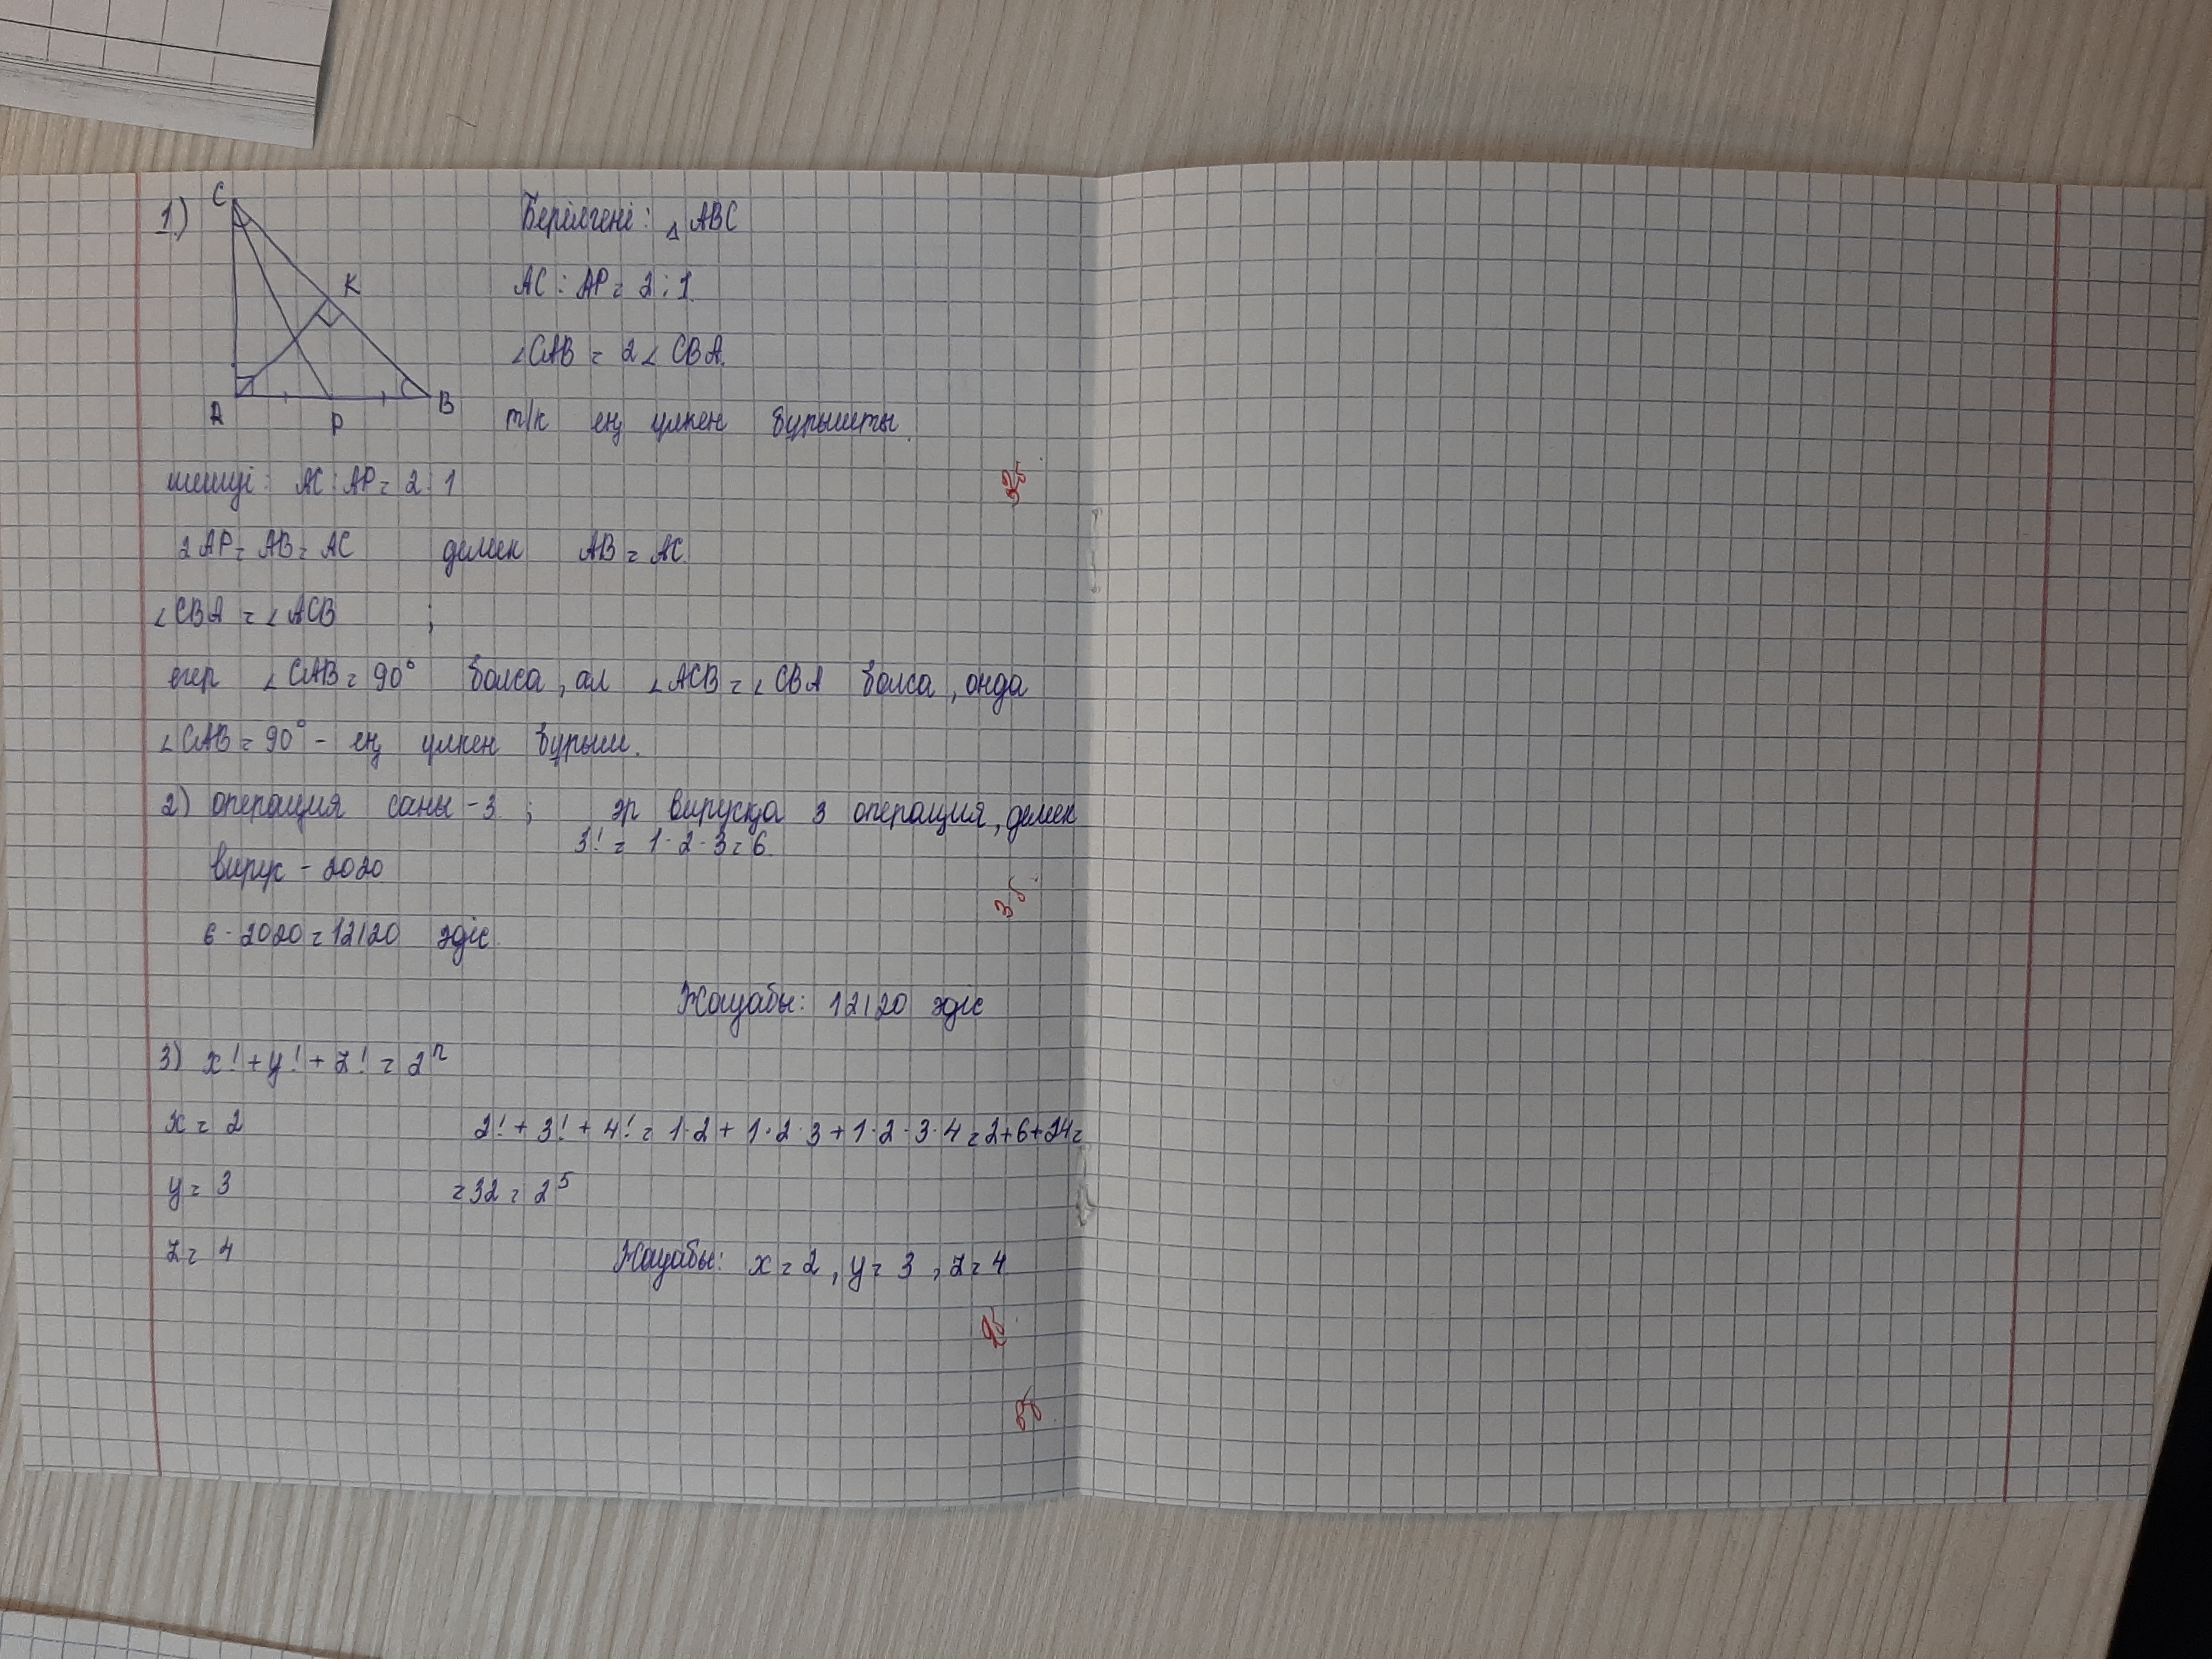 1.)
C
K
A
P
B
Берілгені: △ ABC
AC : AP = 2 : 1.
∠CAB = 2∠ CBA.
т/к ең үлкен бұрышты.
шешуі: AC : AP = 2 : 1
2AP = AB = AC демек AB = AC.
∠CBA = ∠ACB ;
егер ∠CAB = 90° болса, ал ∠ACB = ∠CBA болса, онда
∠CAB = 90° - ең үлкен бұрыш.
2) операция саны - 3 ; әр вирусқа 3 операция, демек
3! = 1·2·3 = 6.
вирус - 2020
3б.
6 · 2020 = 12120 әдіс.
Жауабы: 12120 әдіс
3) x! + y! + z! = 2ⁿ
x = 2 2! + 3! + 4! = 1·2 + 1·2·3 + 1·2·3·4 = 2+6+24=
y = 3 = 32 = 2⁵
z = 4
Жауабы: x = 2, y = 3, z = 4
2б.
8б.